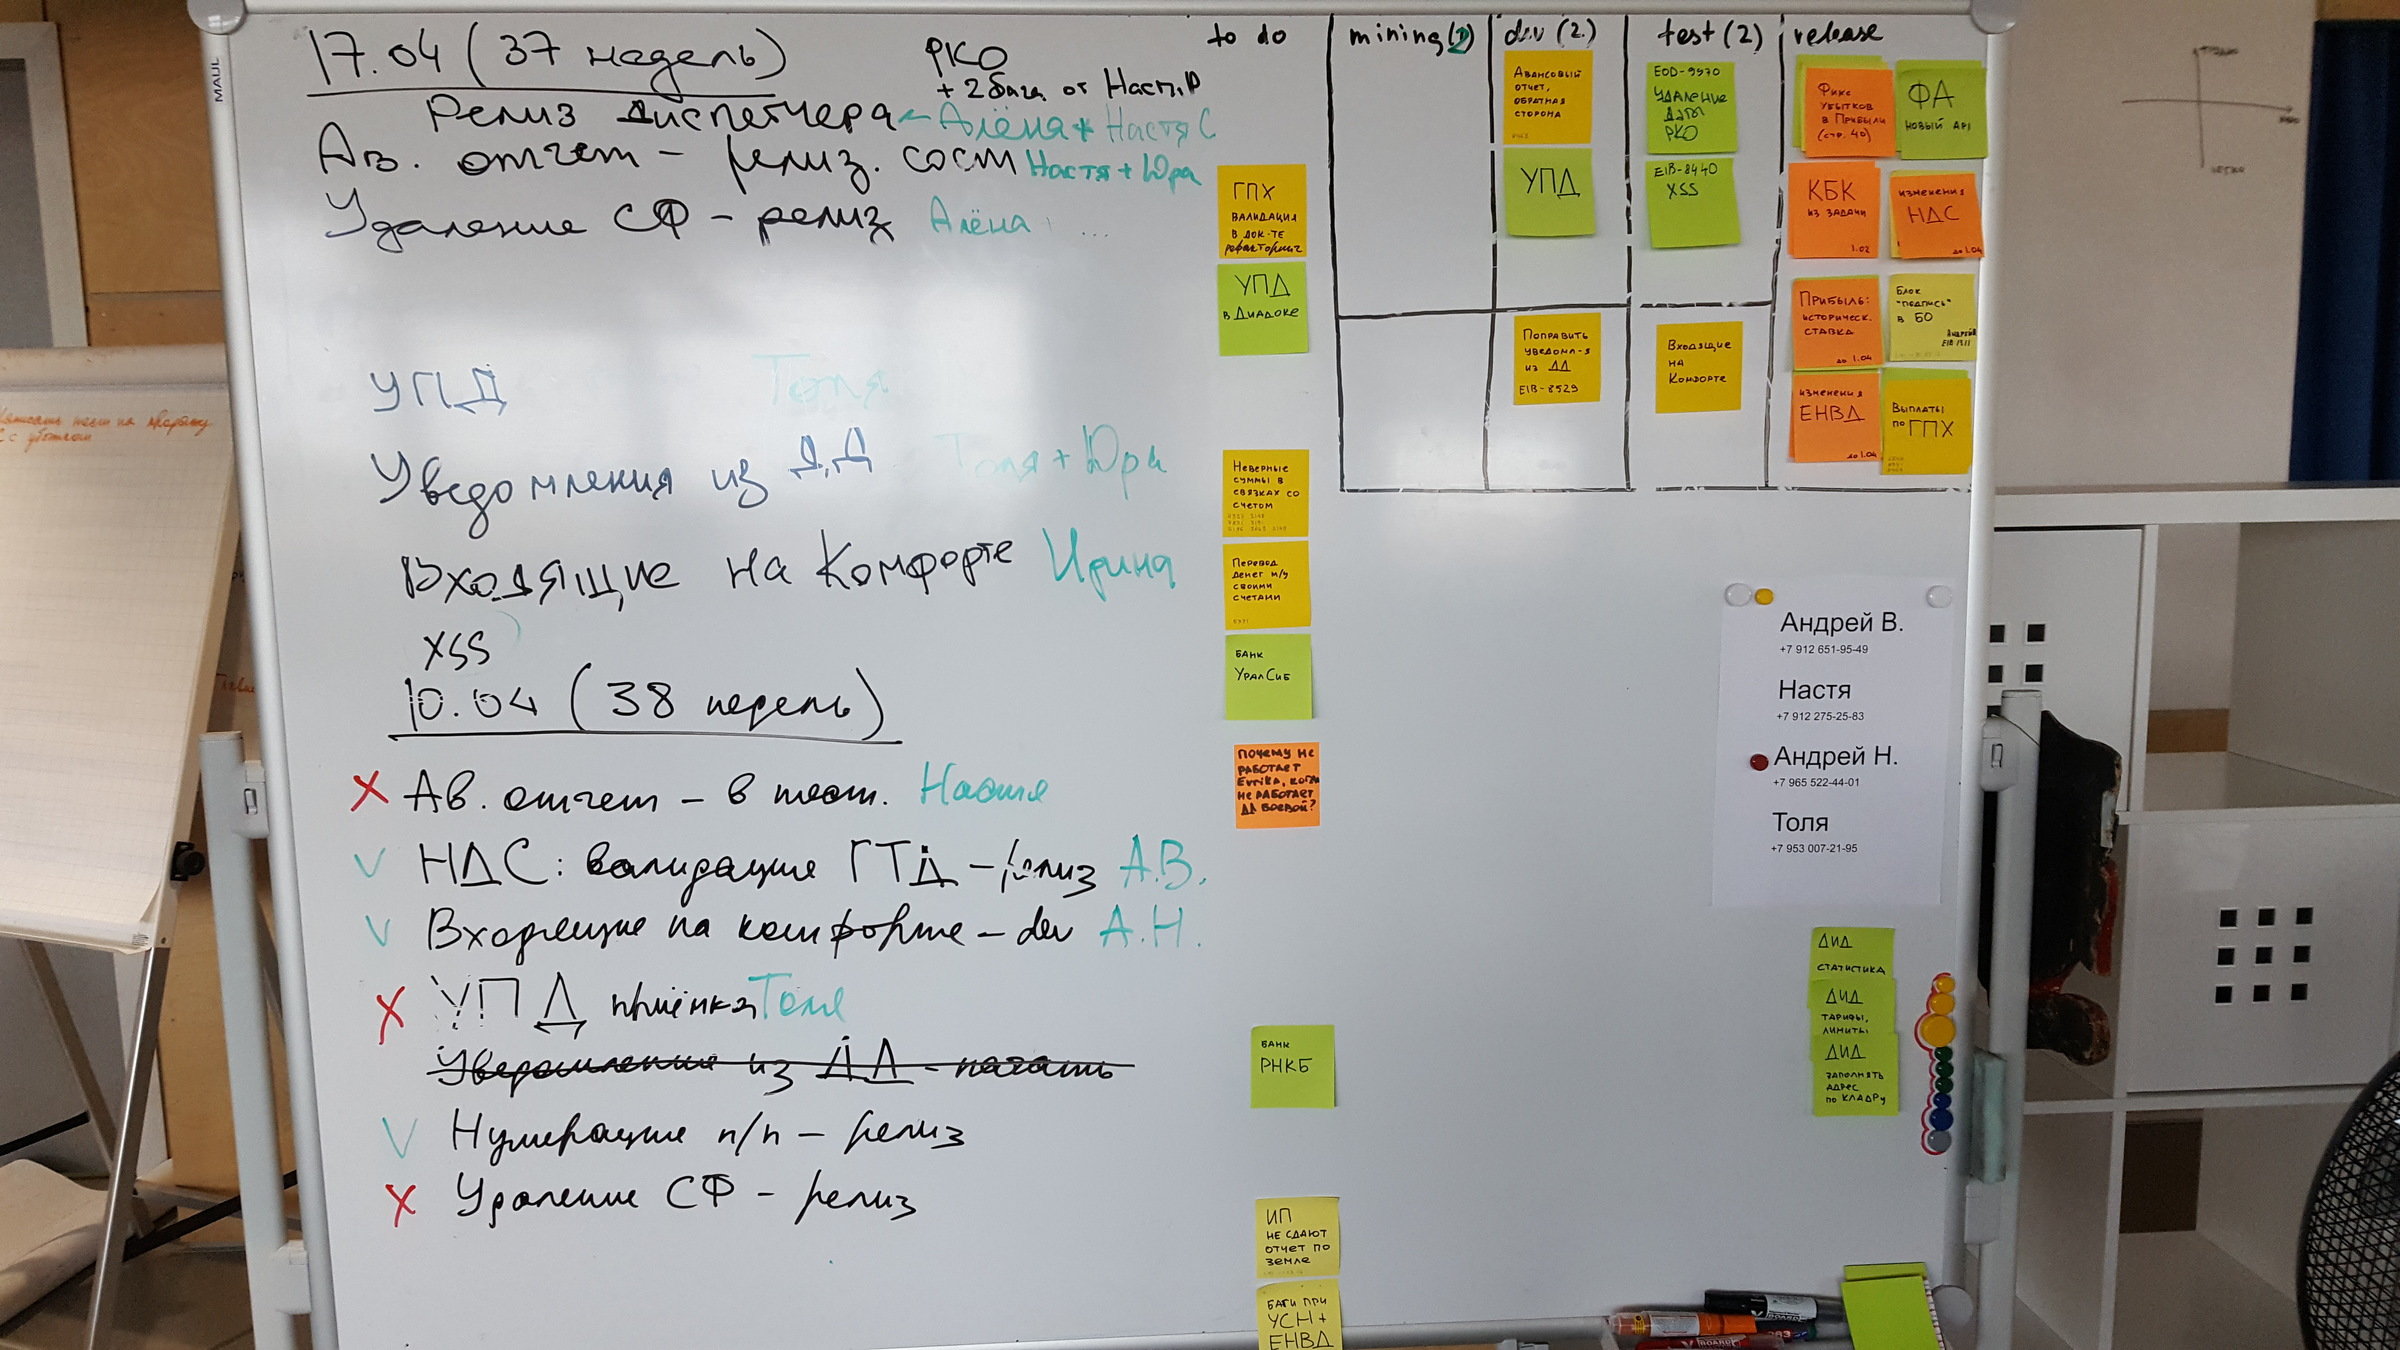 MAUL
17.04 (37 недель)
РКО
+ 2 бага от Насти
Релиз диспетчера Алёна + Настя С
Ав. отчет – релиз. сост Настя + Юра
Удаление СФ – релиз Алёна
УПД Толя
Уведомления из Д.Д Толя + Юра
Входящие на Комфорте Ирина
XSS
10.04 (38 недель)
X Ав. отчет – в тест. Настя
V НДС: валидация ГТД – релиз А.В.
V Входящие на комфорте – dev А.Н.
X УПД приёмка Толя
Уведомления из ДД - начать
V Нумерация п/п – релиз
X Удаление СФ – релиз
to do
ГПХ
валидация
в док-те
рефакторинг
УПД
в Диадоке
Неверные
суммы в
связках со
счетом
Перевод
денег м/у
своими
счетами
банк
УралСиб
почему не
работает
Evrika, когда
не работает
ДД боевой?
банк
РНКБ
ИП
не сдают
отчет по
земле
баги при
УСН +
ЕНВД
mining(2)
dev (2)
Авансовый
отчет,
обратная
сторона
УПД
Поправить
уведомл-я
из ДД
EIB-8529
test (2)
EOD-9970
удаление
даты
РКО
EIB-8440
XSS
Входящие
на
Комфорте
release
Фикс
убытков
в Прибыли
(стр. 40)
ФА
новый API
КБК
из задачи
1.02
изменения
НДС
до 1.04
Прибыль:
историческ.
ставка
до 1.04
Блок
"подпись"
в БО
изменения
ЕНВД
до 1.04
Выплаты
по ГПХ
Андрей В.
+7 912 651-95-49
Настя
+7 912 275-25-83
Андрей Н.
+7 965 522-44-01
Толя
+7 953 007-21-95
ДИД
статистика
ДИД
тарифы,
лимиты
ДИД
заполнять
адрес
по КЛАДРу